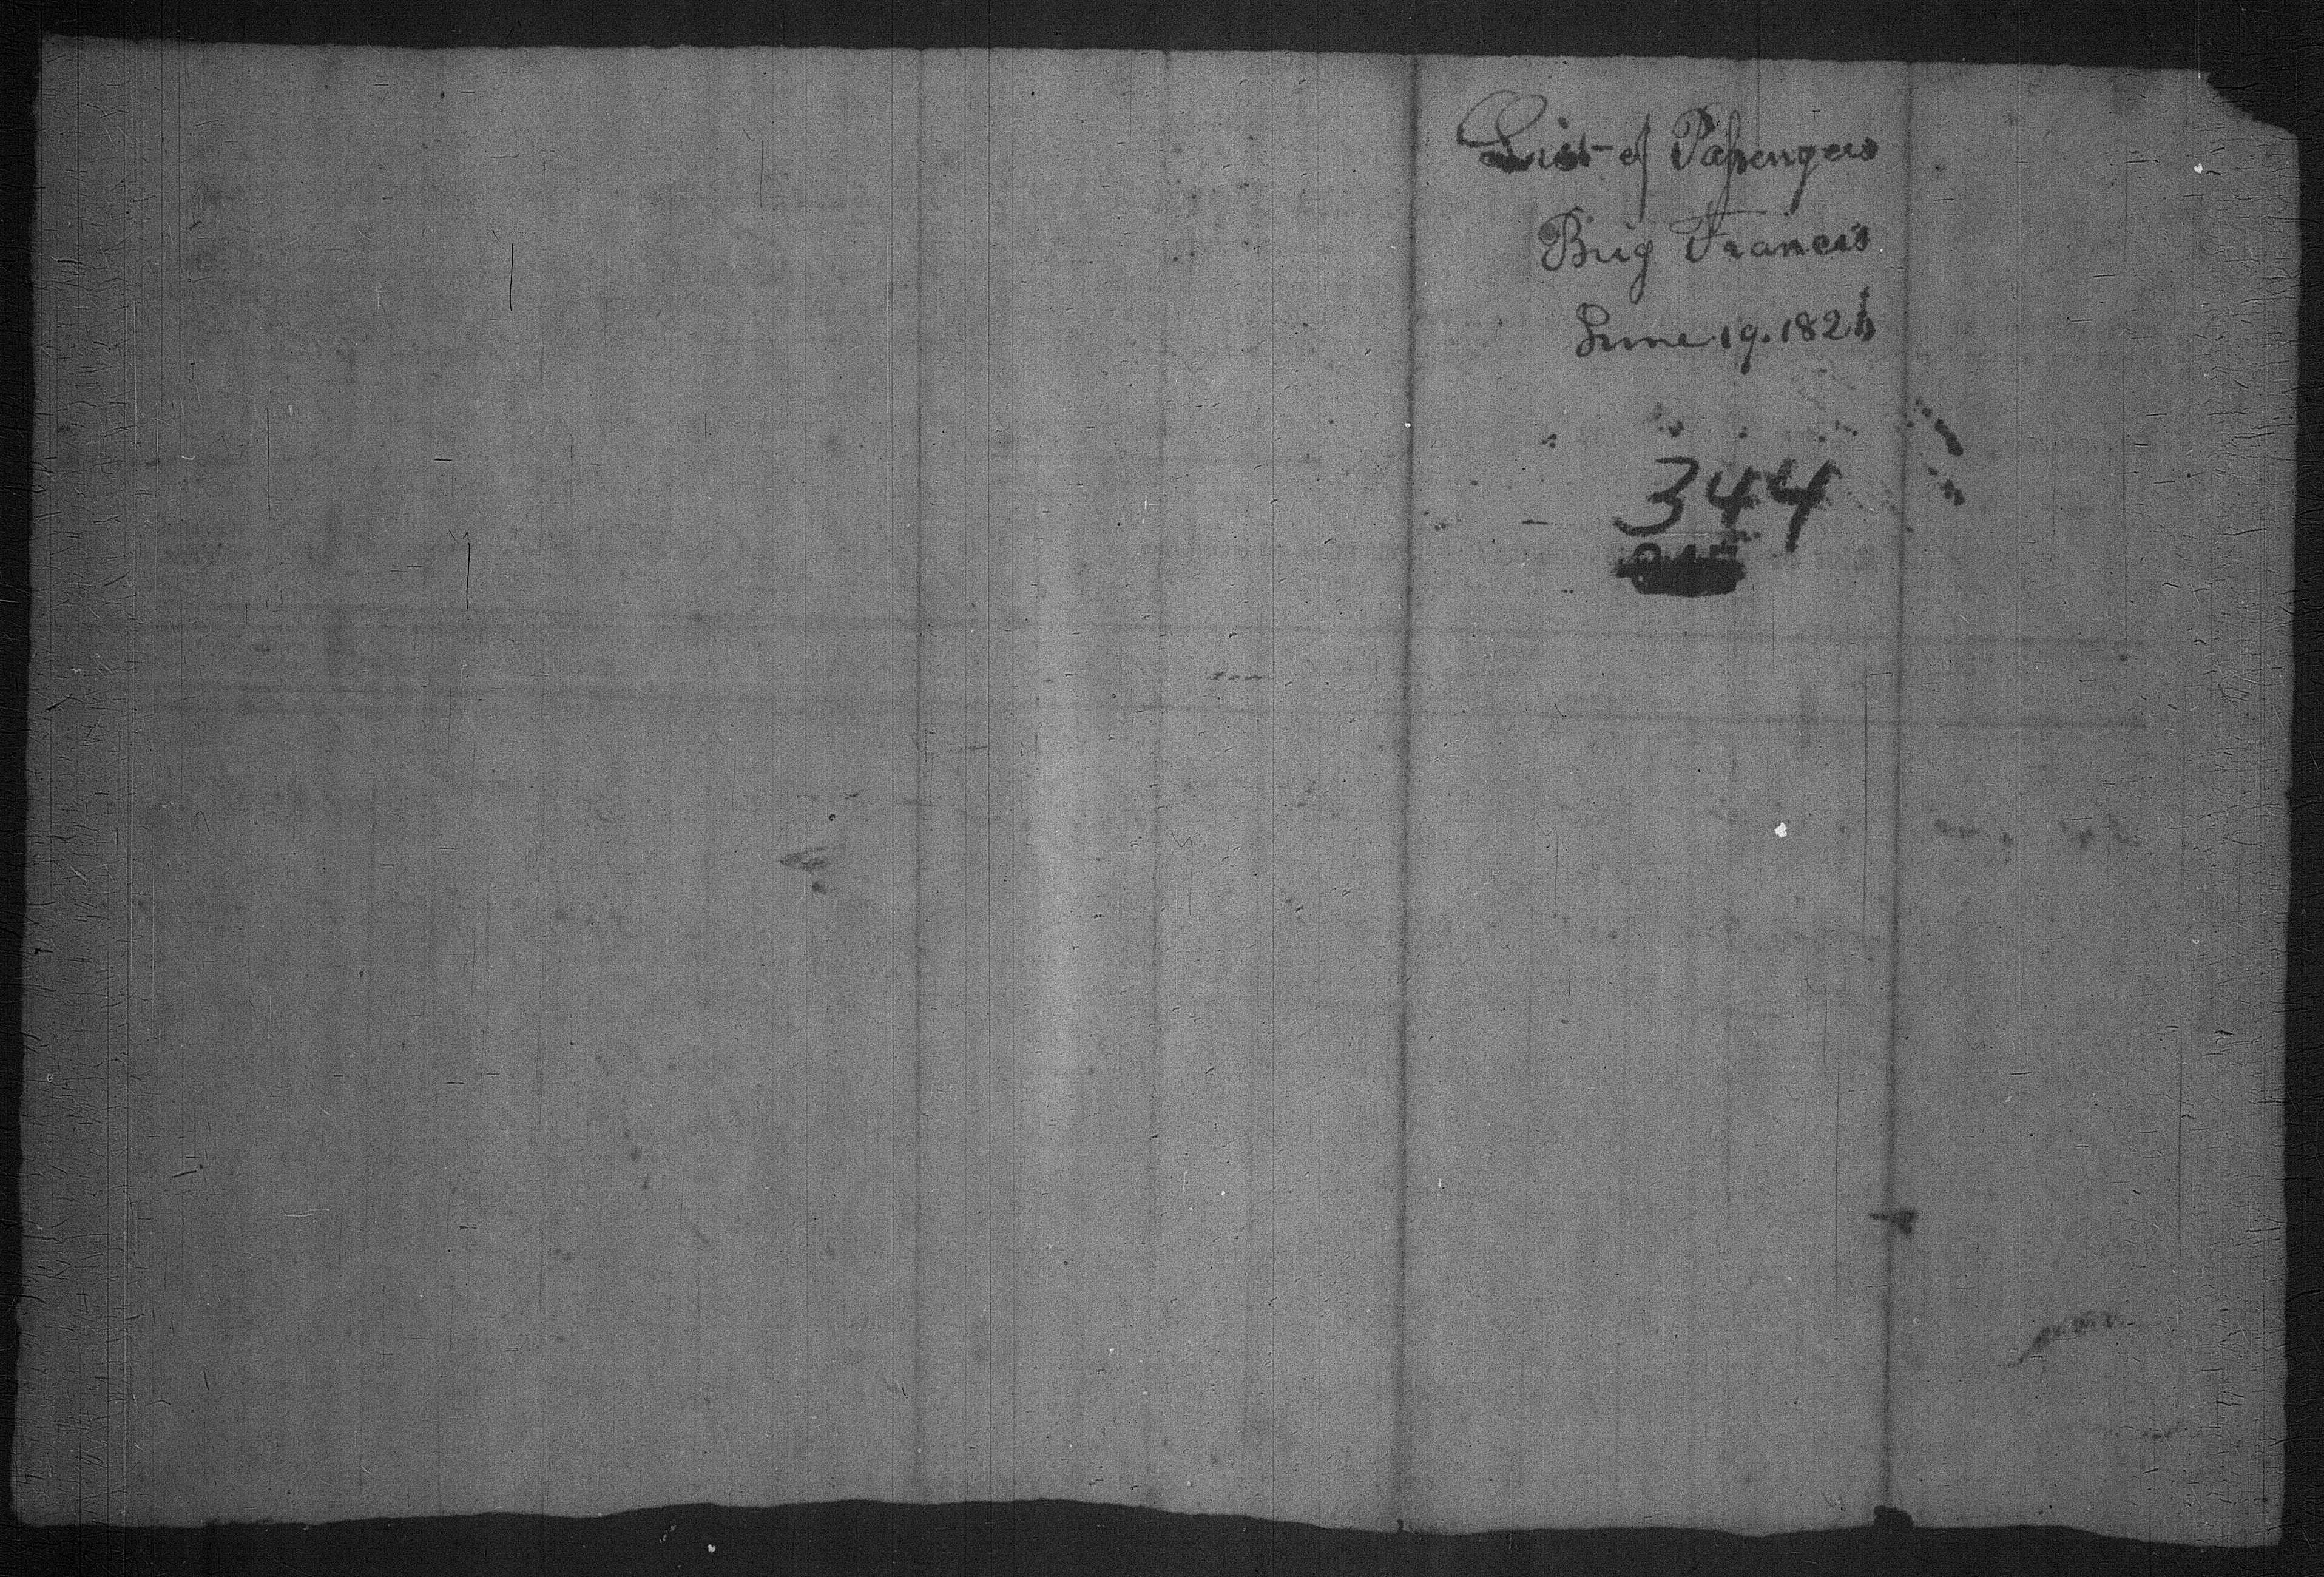 List of Passengers
Brig Francis
June 19. 182
344